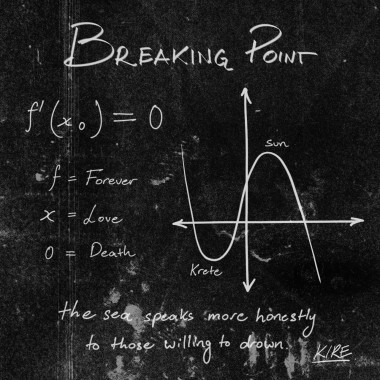 BREAKING POINT
f'(x₀) = 0
sun
f = Forever
x = Love
0 = Death
Krete
the sea speaks more honestly
to those willing to drown.
KIRE